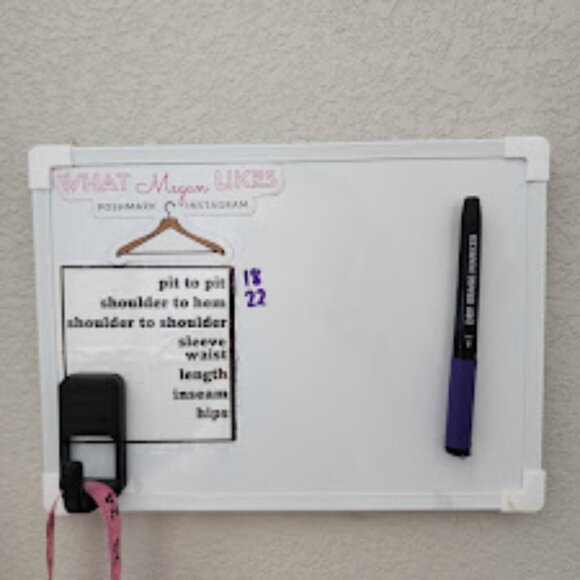 WHAT Megan LIKES
POSHMARK INSTAGRAM
pit to pit 18
shoulder to hem 22
shoulder to shoulder
sleeve
waist
length
inseam
hips
DRY ERASE MARKER